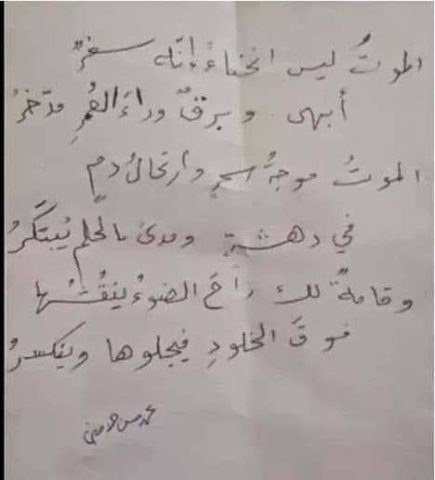 الموتُ ليس انحناءً إنّه سفرٌ
أبهى وبرقٌ وراءَ العُمرِ مدّخرُ
الموتُ موجةُ سرٍ وارتحالُ دمٍ
في دهشةٍ ومدىً بالحلمِ يُبتكَرُ
وقامةٌ لك راحَ الضوءُ ينقُشُها
فوقَ الخلودِ فيجلوها وينكسرُ
محمد